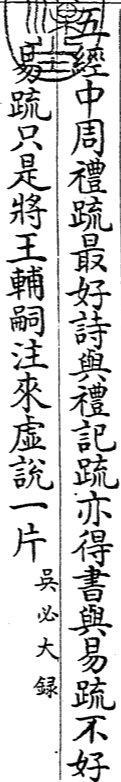 五經中周禮疏最好詩與禮記疏亦得書與易疏不好
易疏只是將王輔嗣注來虛說一片吳必大録